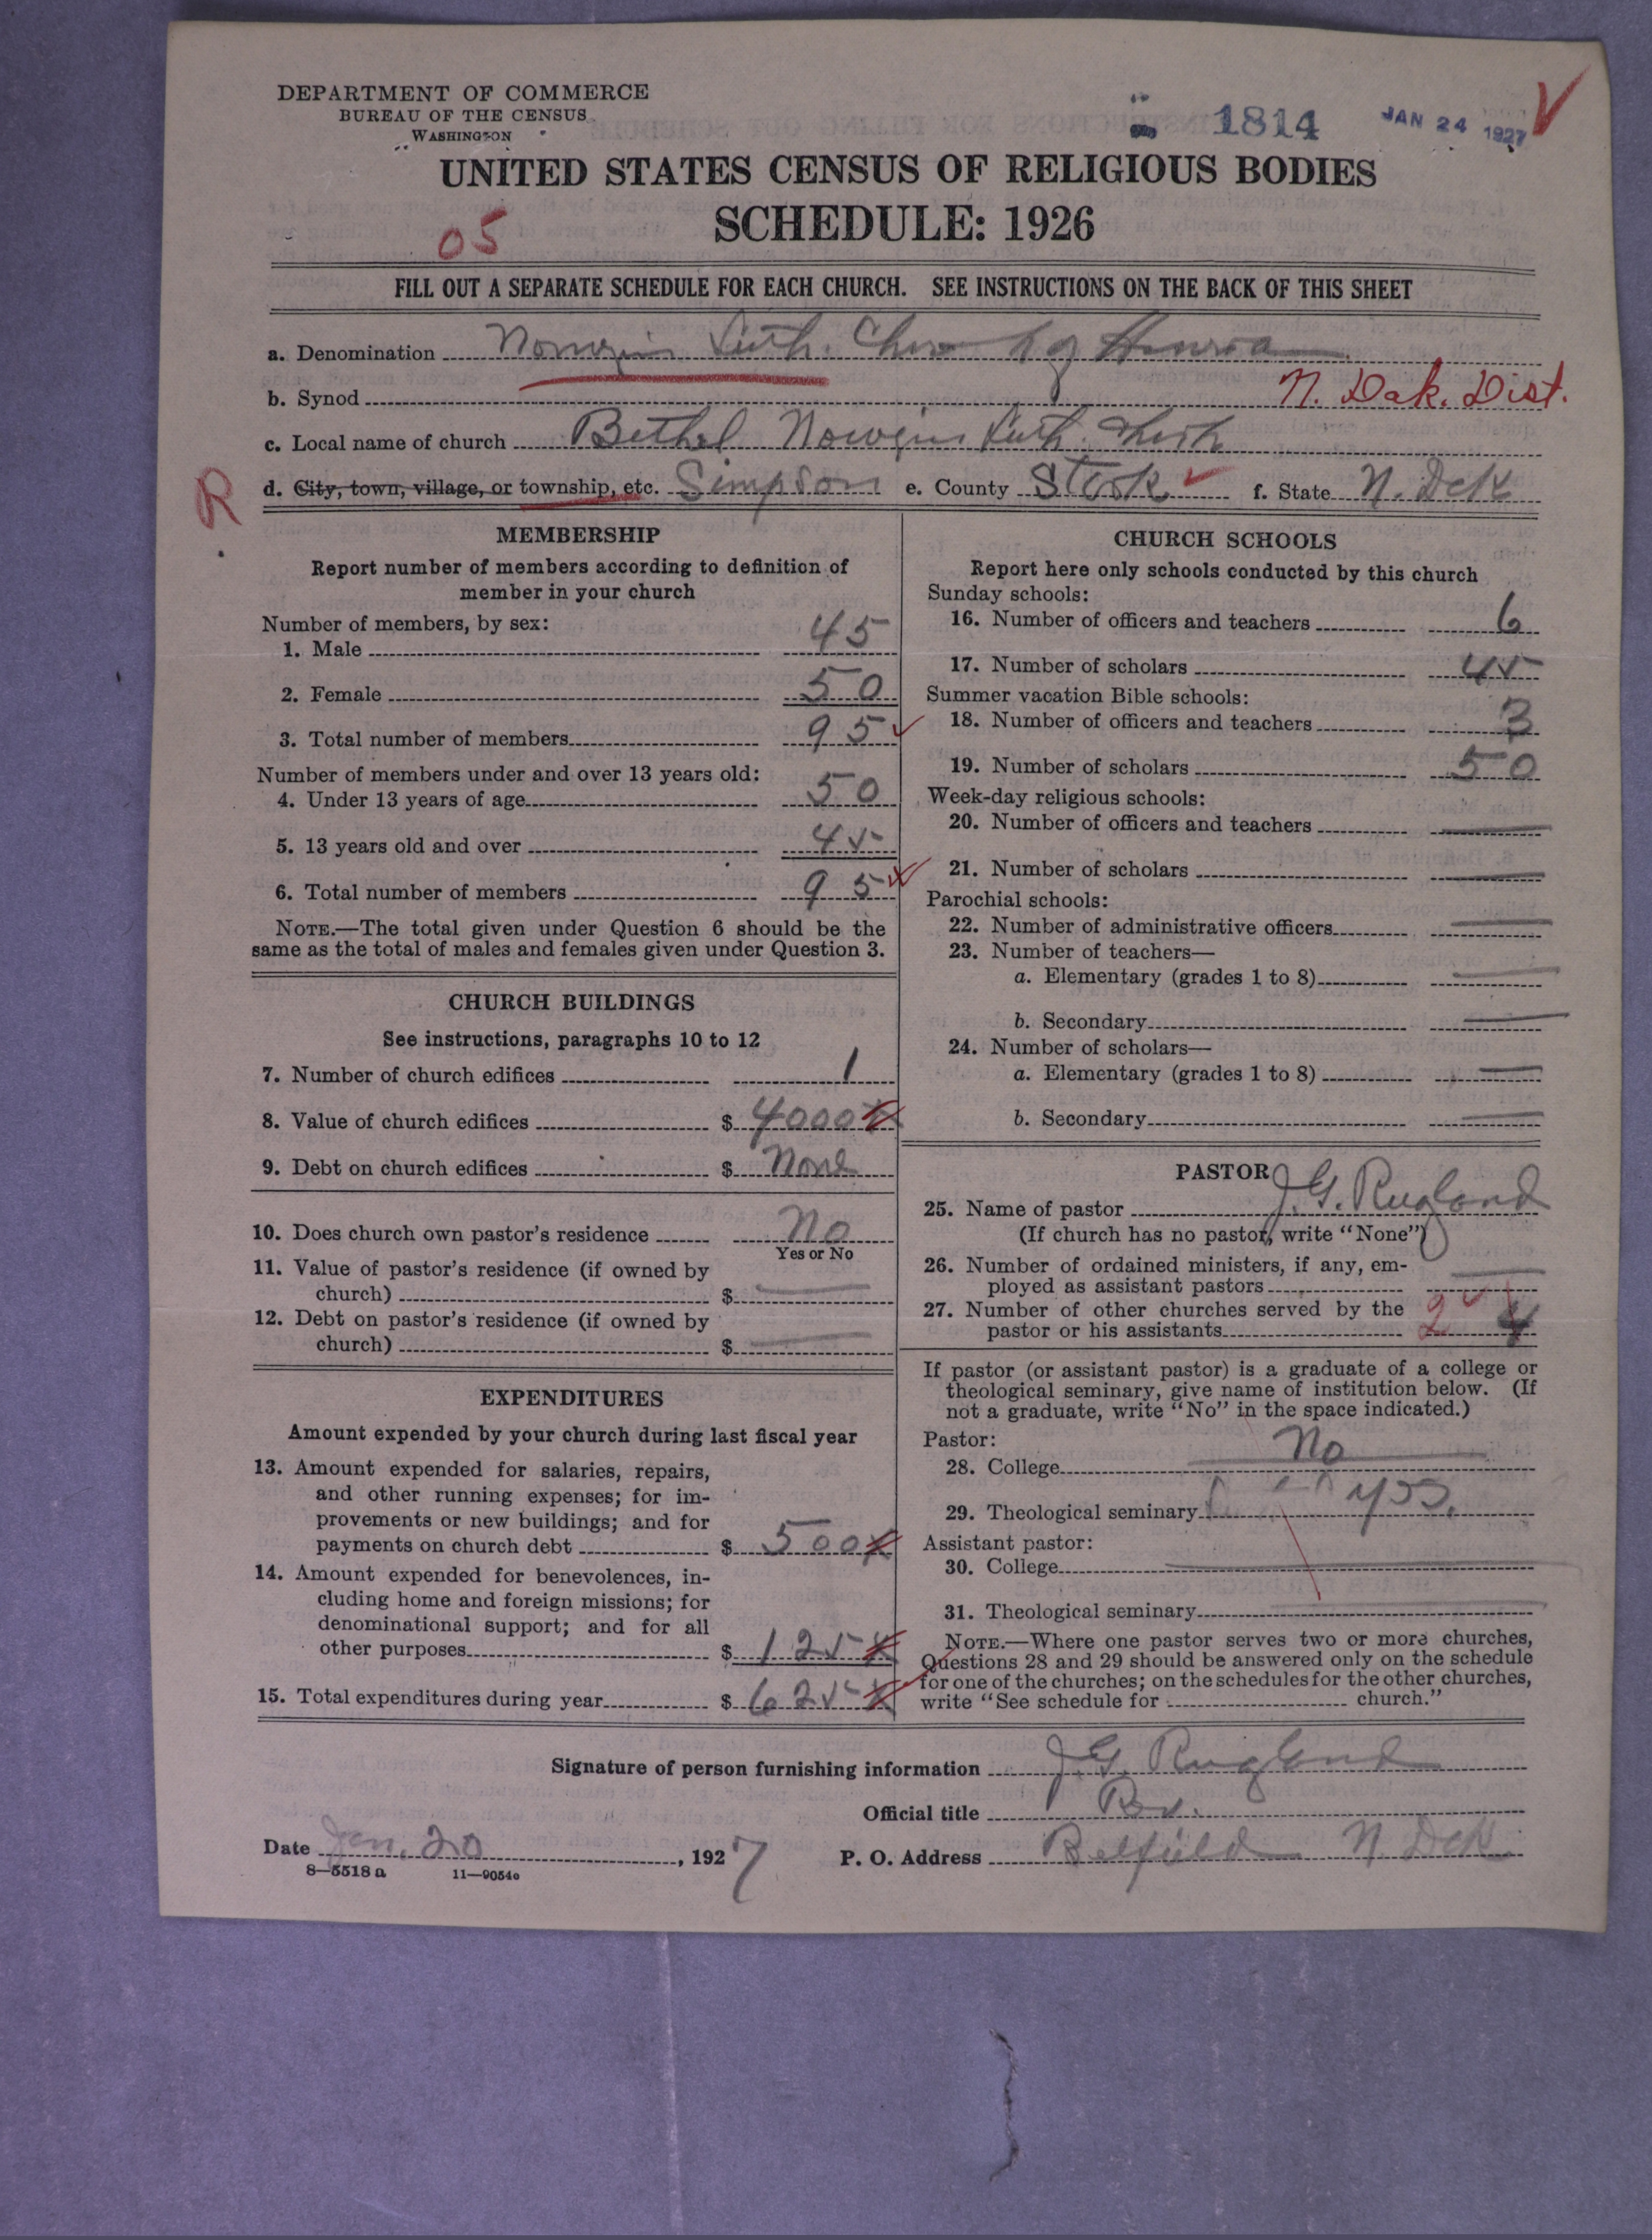 DEPARTMENT OF COMMERCE
BUREAU OF THE CENSUS
WASHINGTON
1814
JAN 24 1927
UNITED STATES CENSUS OF RELIGIOUS BODIES
SCHEDULE: 1926
05
FILL OUT A SEPARATE SCHEDULE FOR EACH CHURCH. SEE INSTRUCTIONS ON THE BACK OF THIS SHEET
a. Denomination Luth.
b. Synod N. Dak. Dist.
c. Local name of church Bethel Luth.
R
d. City, town, village, or township, etc. Simpson e. County Stark f. State N. Dak
MEMBERSHIP
Report number of members according to definition of
member in your church
Number of members, by sex:
1. Male 45
2. Female 50
3. Total number of members 95
Number of members under and over 13 years old:
4. Under 13 years of age 50
5. 13 years old and over 45
6. Total number of members 95
NOTE.—The total given under Question 6 should be the
same as the total of males and females given under Question 3.
CHURCH BUILDINGS
See instructions, paragraphs 10 to 12
7. Number of church edifices 1
8. Value of church edifices $ 4000
9. Debt on church edifices $ None
10. Does church own pastor's residence No
Yes or No
11. Value of pastor's residence (if owned by
church) $ —
12. Debt on pastor's residence (if owned by
church) $ —
EXPENDITURES
Amount expended by your church during last fiscal year
13. Amount expended for salaries, repairs,
and other running expenses; for im-
provements or new buildings; and for
payments on church debt $ 500
14. Amount expended for benevolences, in-
cluding home and foreign missions; for
denominational support; and for all
other purposes $ 125
15. Total expenditures during year $ 625
CHURCH SCHOOLS
Report here only schools conducted by this church
Sunday schools:
16. Number of officers and teachers 6
17. Number of scholars 45
Summer vacation Bible schools:
18. Number of officers and teachers 3
19. Number of scholars 50
Week-day religious schools:
20. Number of officers and teachers —
21. Number of scholars —
Parochial schools:
22. Number of administrative officers —
23. Number of teachers—
a. Elementary (grades 1 to 8) —
b. Secondary —
24. Number of scholars—
a. Elementary (grades 1 to 8) —
b. Secondary —
PASTOR
25. Name of pastor J. G. Rugland
(If church has no pastor, write "None")
26. Number of ordained ministers, if any, em-
ployed as assistant pastors —
27. Number of other churches served by the
pastor or his assistants 2 4
If pastor (or assistant pastor) is a graduate of a college or
theological seminary, give name of institution below. (If
not a graduate, write "No" in the space indicated.)
Pastor:
28. College No
29. Theological seminary yes.
Assistant pastor:
30. College
31. Theological seminary
NOTE.—Where one pastor serves two or more churches,
Questions 28 and 29 should be answered only on the schedule
for one of the churches; on the schedules for the other churches,
write "See schedule for church."
Signature of person furnishing information J. G. Rugland
Official title Rev.
Date Jan. 20, 1927 P. O. Address Belfield N. Dak
8—5518 a 11—9054c